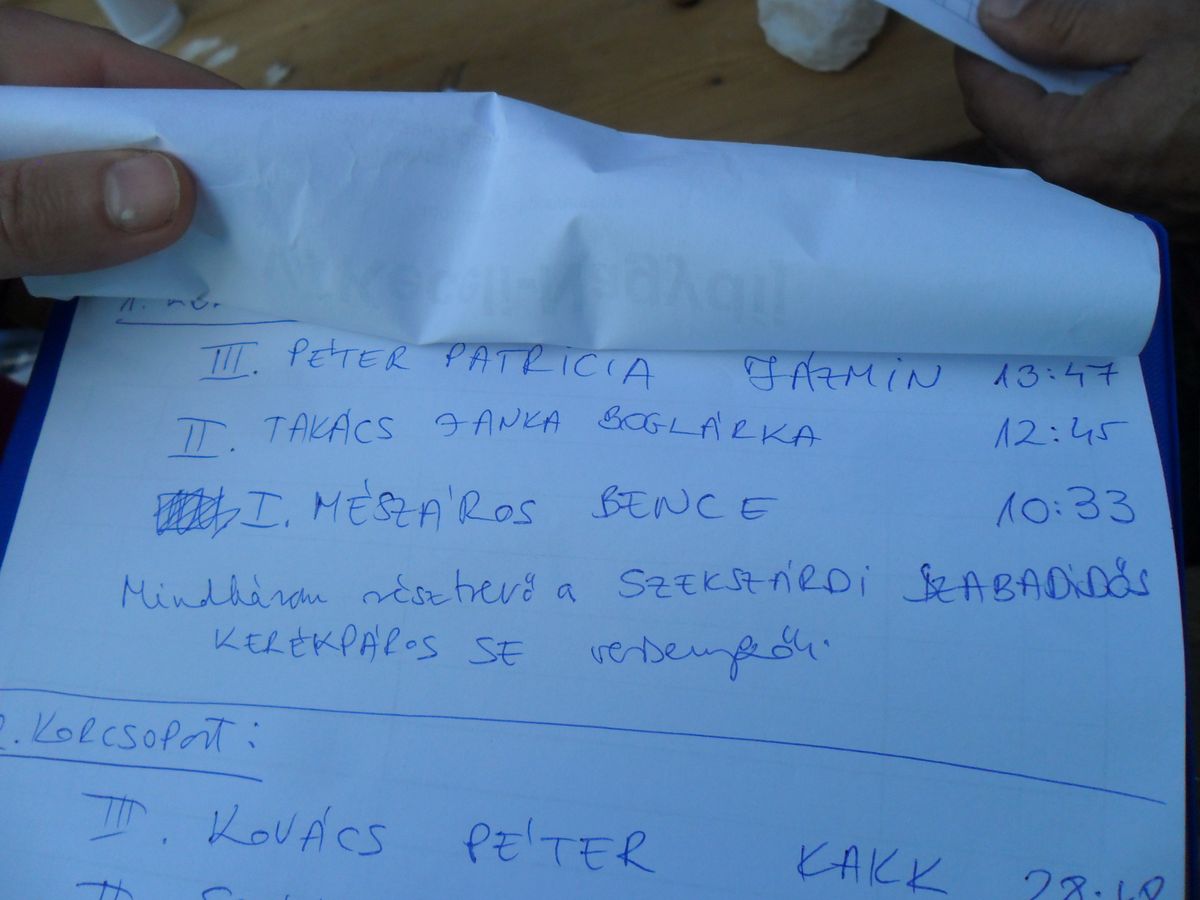 III. PÉTER PATRÍCIA JÁZMIN 13:47
II. TAKÁCS JANKA BOGLÁRKA 12:45
I. MÉSZÁROS BENCE 10:33
Mindhárom résztvevő a SZEKSZÁRDI SZABADIDŐS
KERÉKPÁROS SE versenyzői.
2. KORCSOPORT:
III. KOVÁCS PÉTER KAKK 28:48
II.